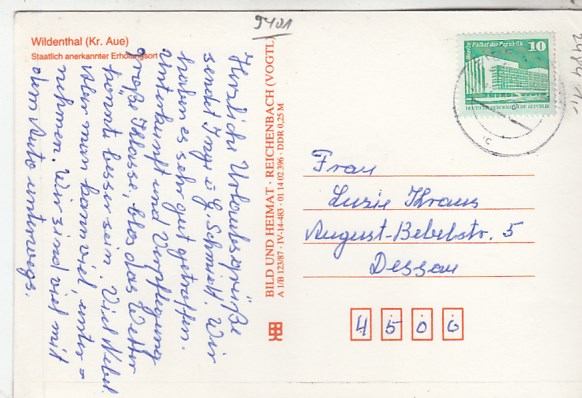 9401
Wildenthal (Kr. Aue)
Staatlich anerkannter Erholungsort
Herzliche Urlaubsgrüße
sendet Inge u. G. Schmidt. Wir
haben es sehr gut getroffen.
Unterkunft und Verpflegung
große Klasse, blos das Wetter
könnt besser sein. Viel Nebel.
Aber man kann viel unter=
nehmen. Wir sind viel mit
dem Auto unterwegs.
BILD UND HEIMAT · REICHENBACH (VOGTL)
A 1/B 123/87 · IV-14-483 · 01 14 02 396 · DDR 0,25 M
10
Palast der Republik
Frau
Luzie Kraus
August-Bebelstr. 5
Dessau
4500